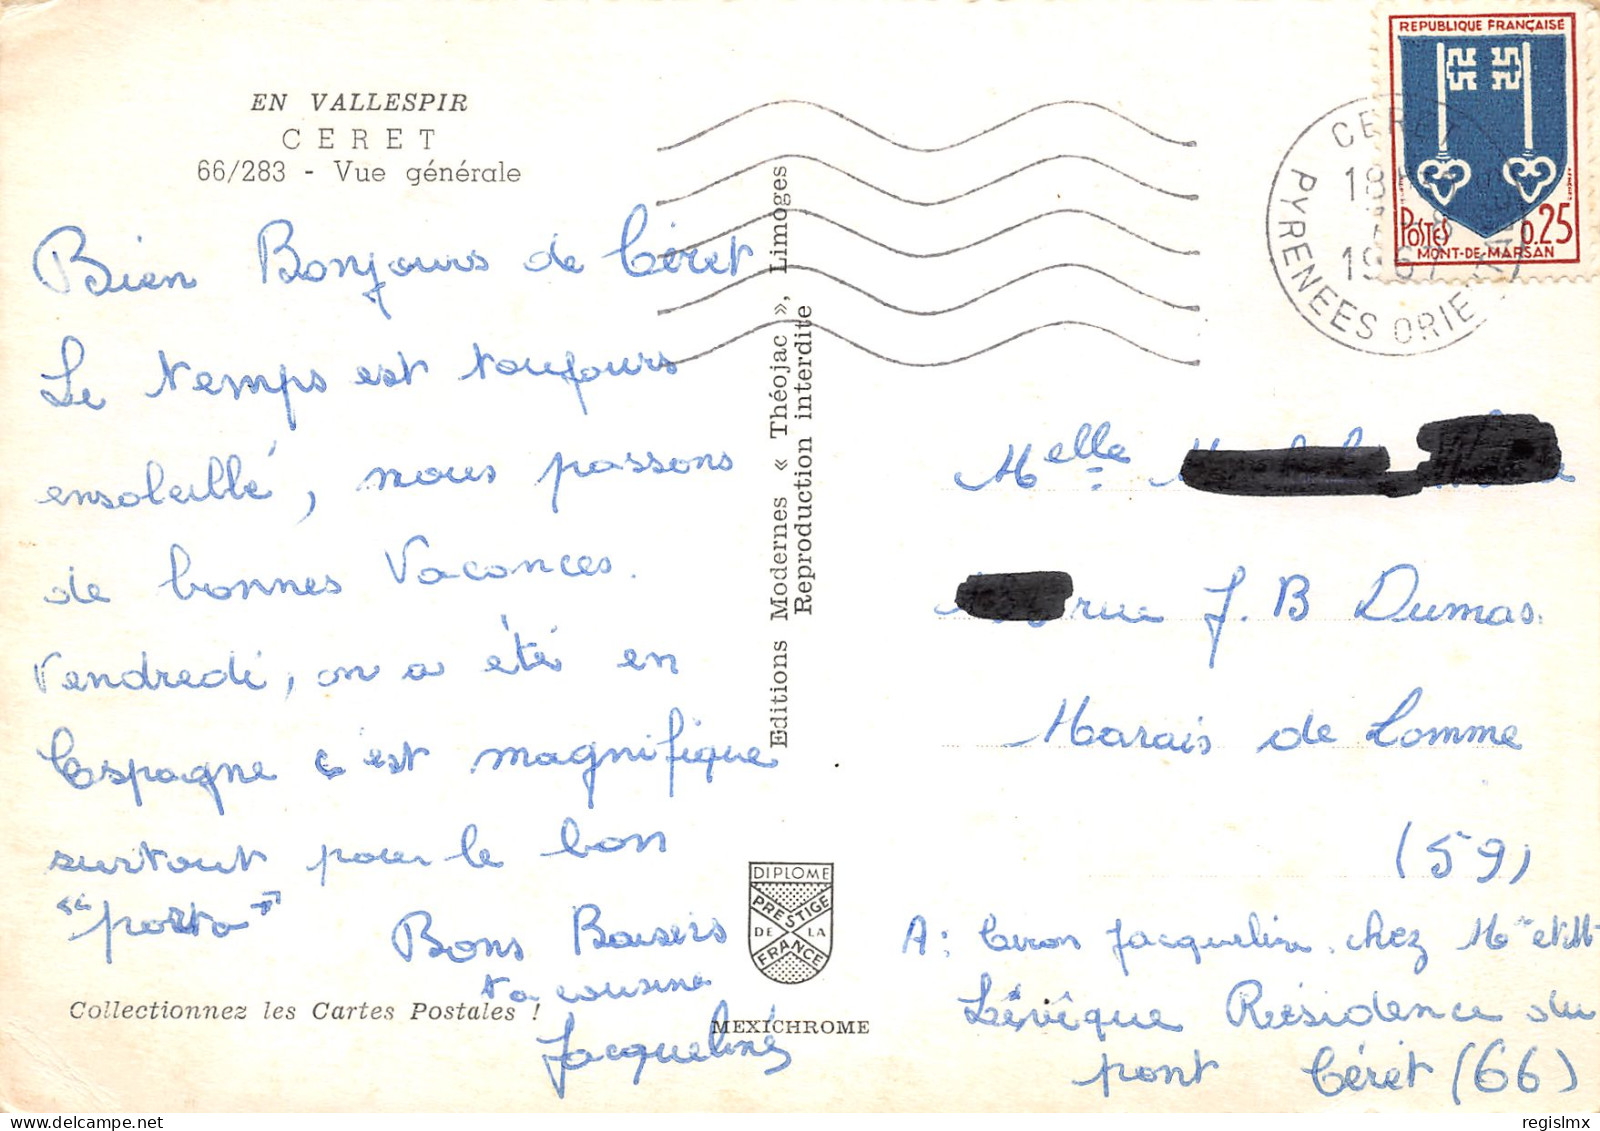 EN VALLESPIR
CERET
66/283 - Vue générale
Bien Bonjours de Céret
Le temps est toujours
ensoleillé, nous passons
de bonnes Vacances.
Vendredi, on a été en
Espagne c'est magnifique
surtout pour le bon
"porto"
Bons Baisers
ta cousine
Jacqueline
Collectionnez les Cartes Postales !
Editions Modernes « Théojac », Limoges
Reproduction interdite
DIPLOME
PRESTIGE
DE LA
FRANCE
MEXICHROME
REPUBLIQUE FRANÇAISE
POSTES 0,25
MONT-DE-MARSAN
CERET
18H
8
1967
PYRENEES ORIE
Melle
rue J. B Dumas.
Marais de Lomme
(59)
A: Jacqueline chez Me et M
Lévêque Résidence du
pont Céret (66)
regislmx